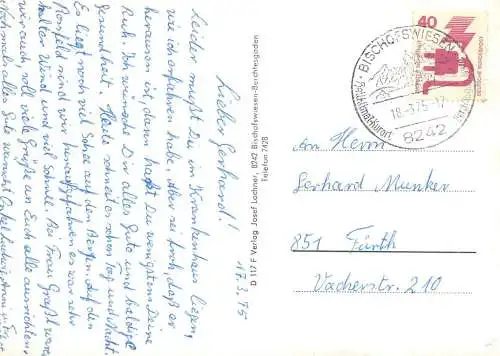 17.3.75
Lieber Gerhard!
Leider mußt Du im Krankenhaus liegen,
wie ich erfahren habe. Aber sei froh, daß er
heraussen ist, dann hast Du wenigstens Deine
Ruh. Ich wünsche Dir alles Gute und baldige
Gesundheit. Heute schneit es schon Tag und Nacht.
Es liegt noch viel Schnee auf den Bergen. Auf den
sind wir hinaufgefahren es war sehr
kalter Wind und viel Schnee. Bei Frau
wir auch, soll viele Grüße an Euch alle ausrichten.
Nochmals alles Gute wünscht Onkel Ludwig
D 117 F Verlag Josef Lochner, 8242 Bischofswiesen-Berchtesgaden
Telefon 7438
BISCHOFSWIESEN
Heilklimat. Kurort
18.-3.75-17
8242
40
DEUTSCHE BUNDESPOST
An Herrn
Gerhard Munker
851 Fürth
Vacherstr. 210